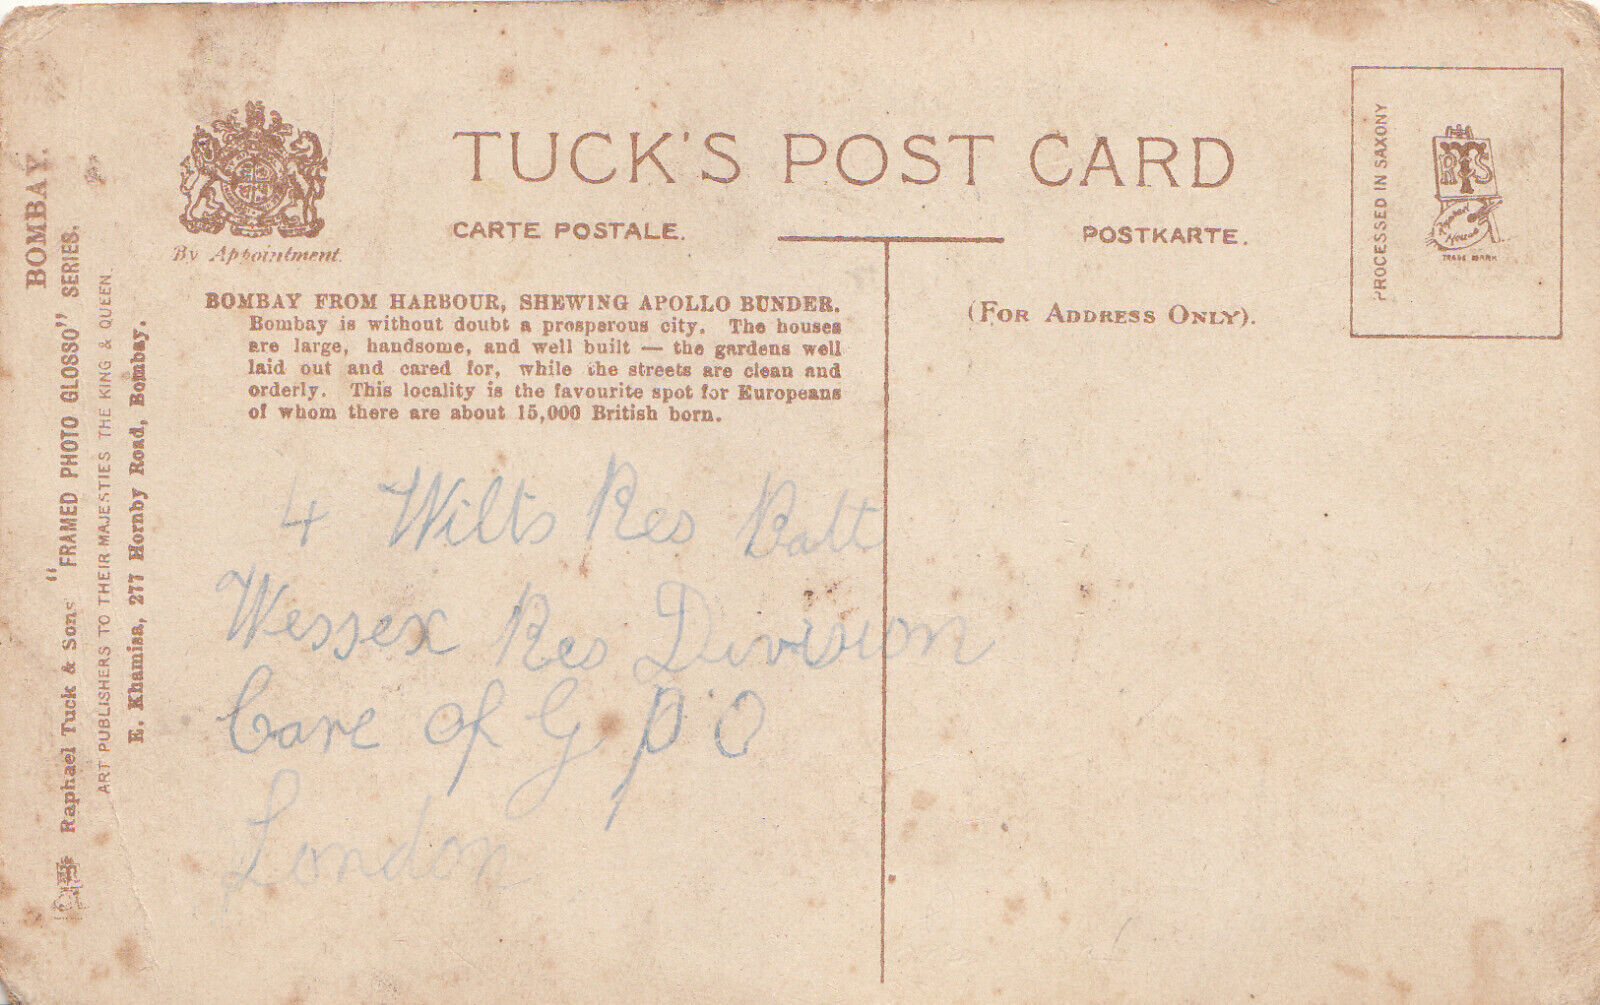 BOMBAY.
Raphael Tuck & Sons' "FRAMED PHOTO GLOSSO" SERIES.
ART PUBLISHERS TO THEIR MAJESTIES THE KING & QUEEN.
E. Khamisa, 277 Hornby Road, Bombay.
By Appointment.
TUCK'S POST CARD
CARTE POSTALE.
POSTKARTE.
BOMBAY FROM HARBOUR, SHEWING APOLLO BUNDER.
Bombay is without doubt a prosperous city. The houses
are large, handsome, and well built — the gardens well
laid out and cared for, while the streets are clean and
orderly. This locality is the favourite spot for Europeans
of whom there are about 15,000 British born.
(FOR ADDRESS ONLY).
PROCESSED IN SAXONY
RTS
Raphael House
TRADE MARK
4 Wilts Res Batt
Wessex Res Division
Care of G P O
London